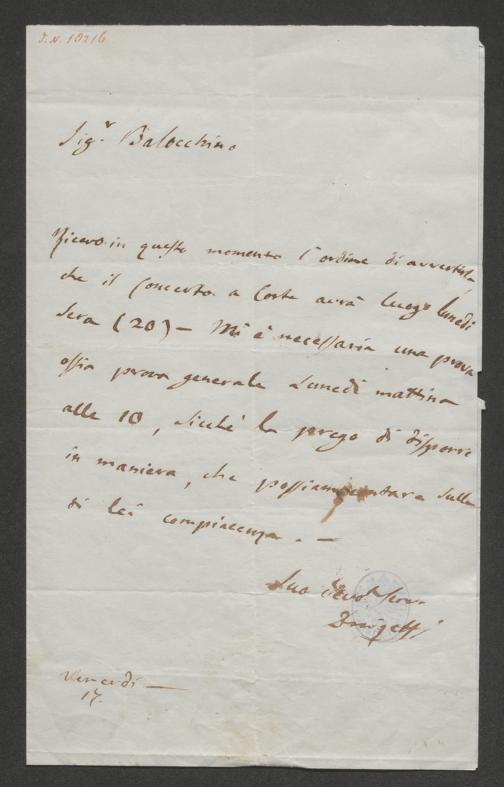 J.N. 10216
Sig.r Balocchino
Ricevo in questo momento l'ordine di avvertirla
che il Concerto a Corte avrà luogo lunedì
sera (20) – Mi è necessaria una prova
ossia prova generale Lunedì mattina
alle 10, sicché la prego di disporre
in maniera, che possiamo contare sulla
di lei compiacenza. –
Suo devot. serv.
Donizetti
Venerdì –
17.